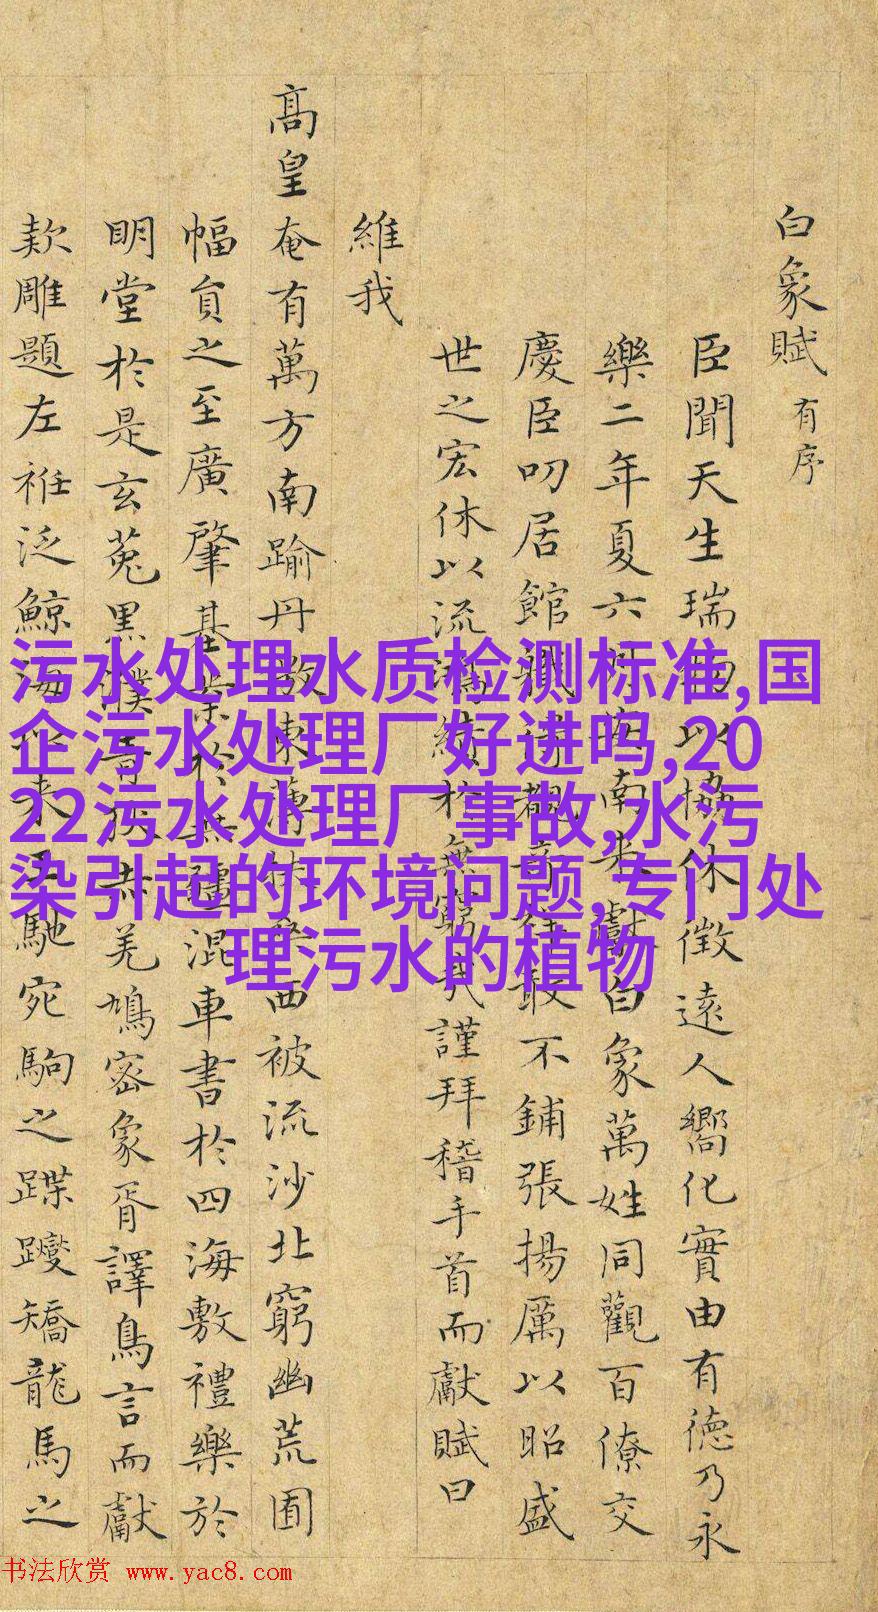 白象賦 有序
臣聞天生瑞物以協休徵遠人嚮化實由有德乃永
樂二年夏六月安南来獻白象萬姓同觀百僚交
慶臣叨居館職得覩敢不鋪張揚厲以昭盛
世之宏休以流鴻績於無窮哉謹拜稽手首而獻賦曰
維我
高皇奄有萬方南踰丹徼東薄扶桑西被流沙北窮幽荒囿
幅員之至廣肇基業於無疆混車書於四海敷禮樂於
明堂於是玄菟黑濮赤羌鳩密象胥譯鳥言而獻
款雕題左袵泛鯨海以来王馳宛駒之蹀躞矯龍馬之
污水处理水质检测标准,国
企污水处理厂好进吗,20
22污水处理厂事故,水污
染引起的环境问题,专门处
理污水的植物
书法欣赏 www.yac8.com